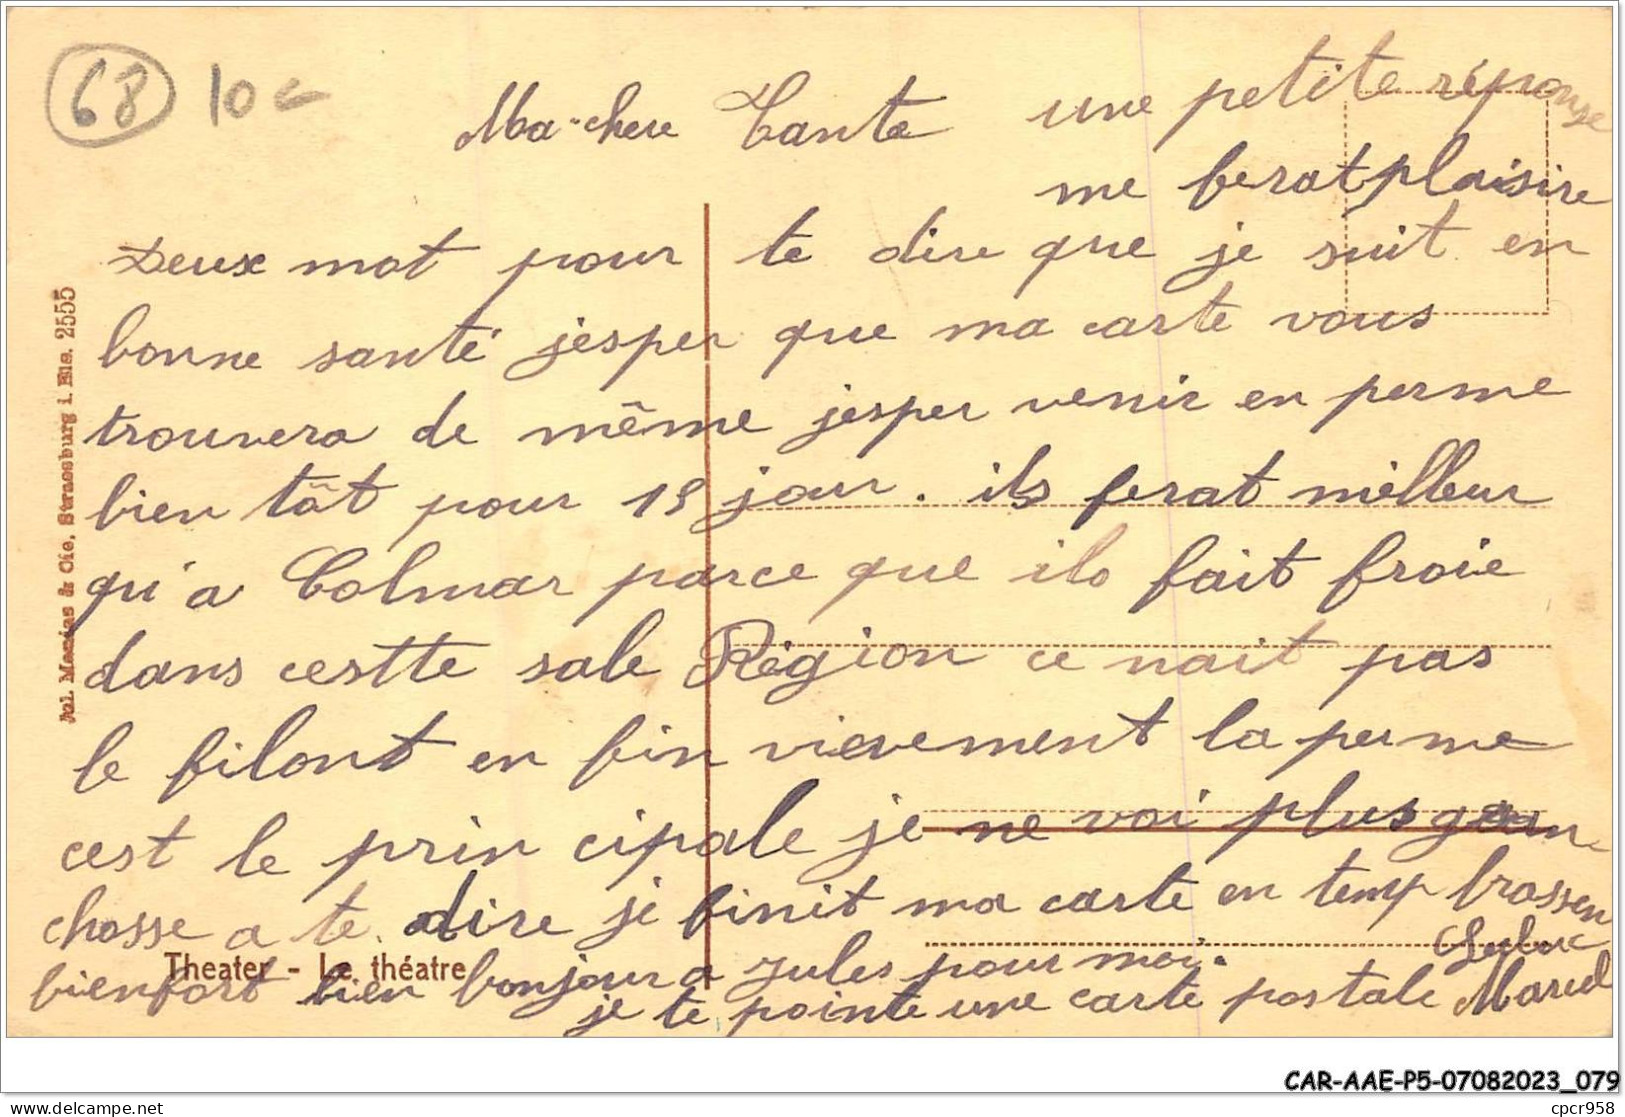 68 10
Ma chere Tante
une petite réponse
me ferat plaisire
Deux mot pour te dire que je suit en
bonne santé jesper que ma carte vous
trouvera de même jesper venir en perme
bien tôt pour 15 jour. ils ferat milleur
qu'a Colmar parce que ils fait froie
dans cestte sale Région ce nait pas
le filont en fin vievement la perme
cest le prin cipale je ne voi plus
chosse a te dire je finit ma carte en temp brassen
bienfort bien bonjour a Jules pour moi.
je te pointe une carte postale Marcel
Theater - Le théatre
Jul. Manias & Cie, Strassburg i. Els. 2555
CAR-AAE-P5-07082023_079
delcampe.net
cpcr958